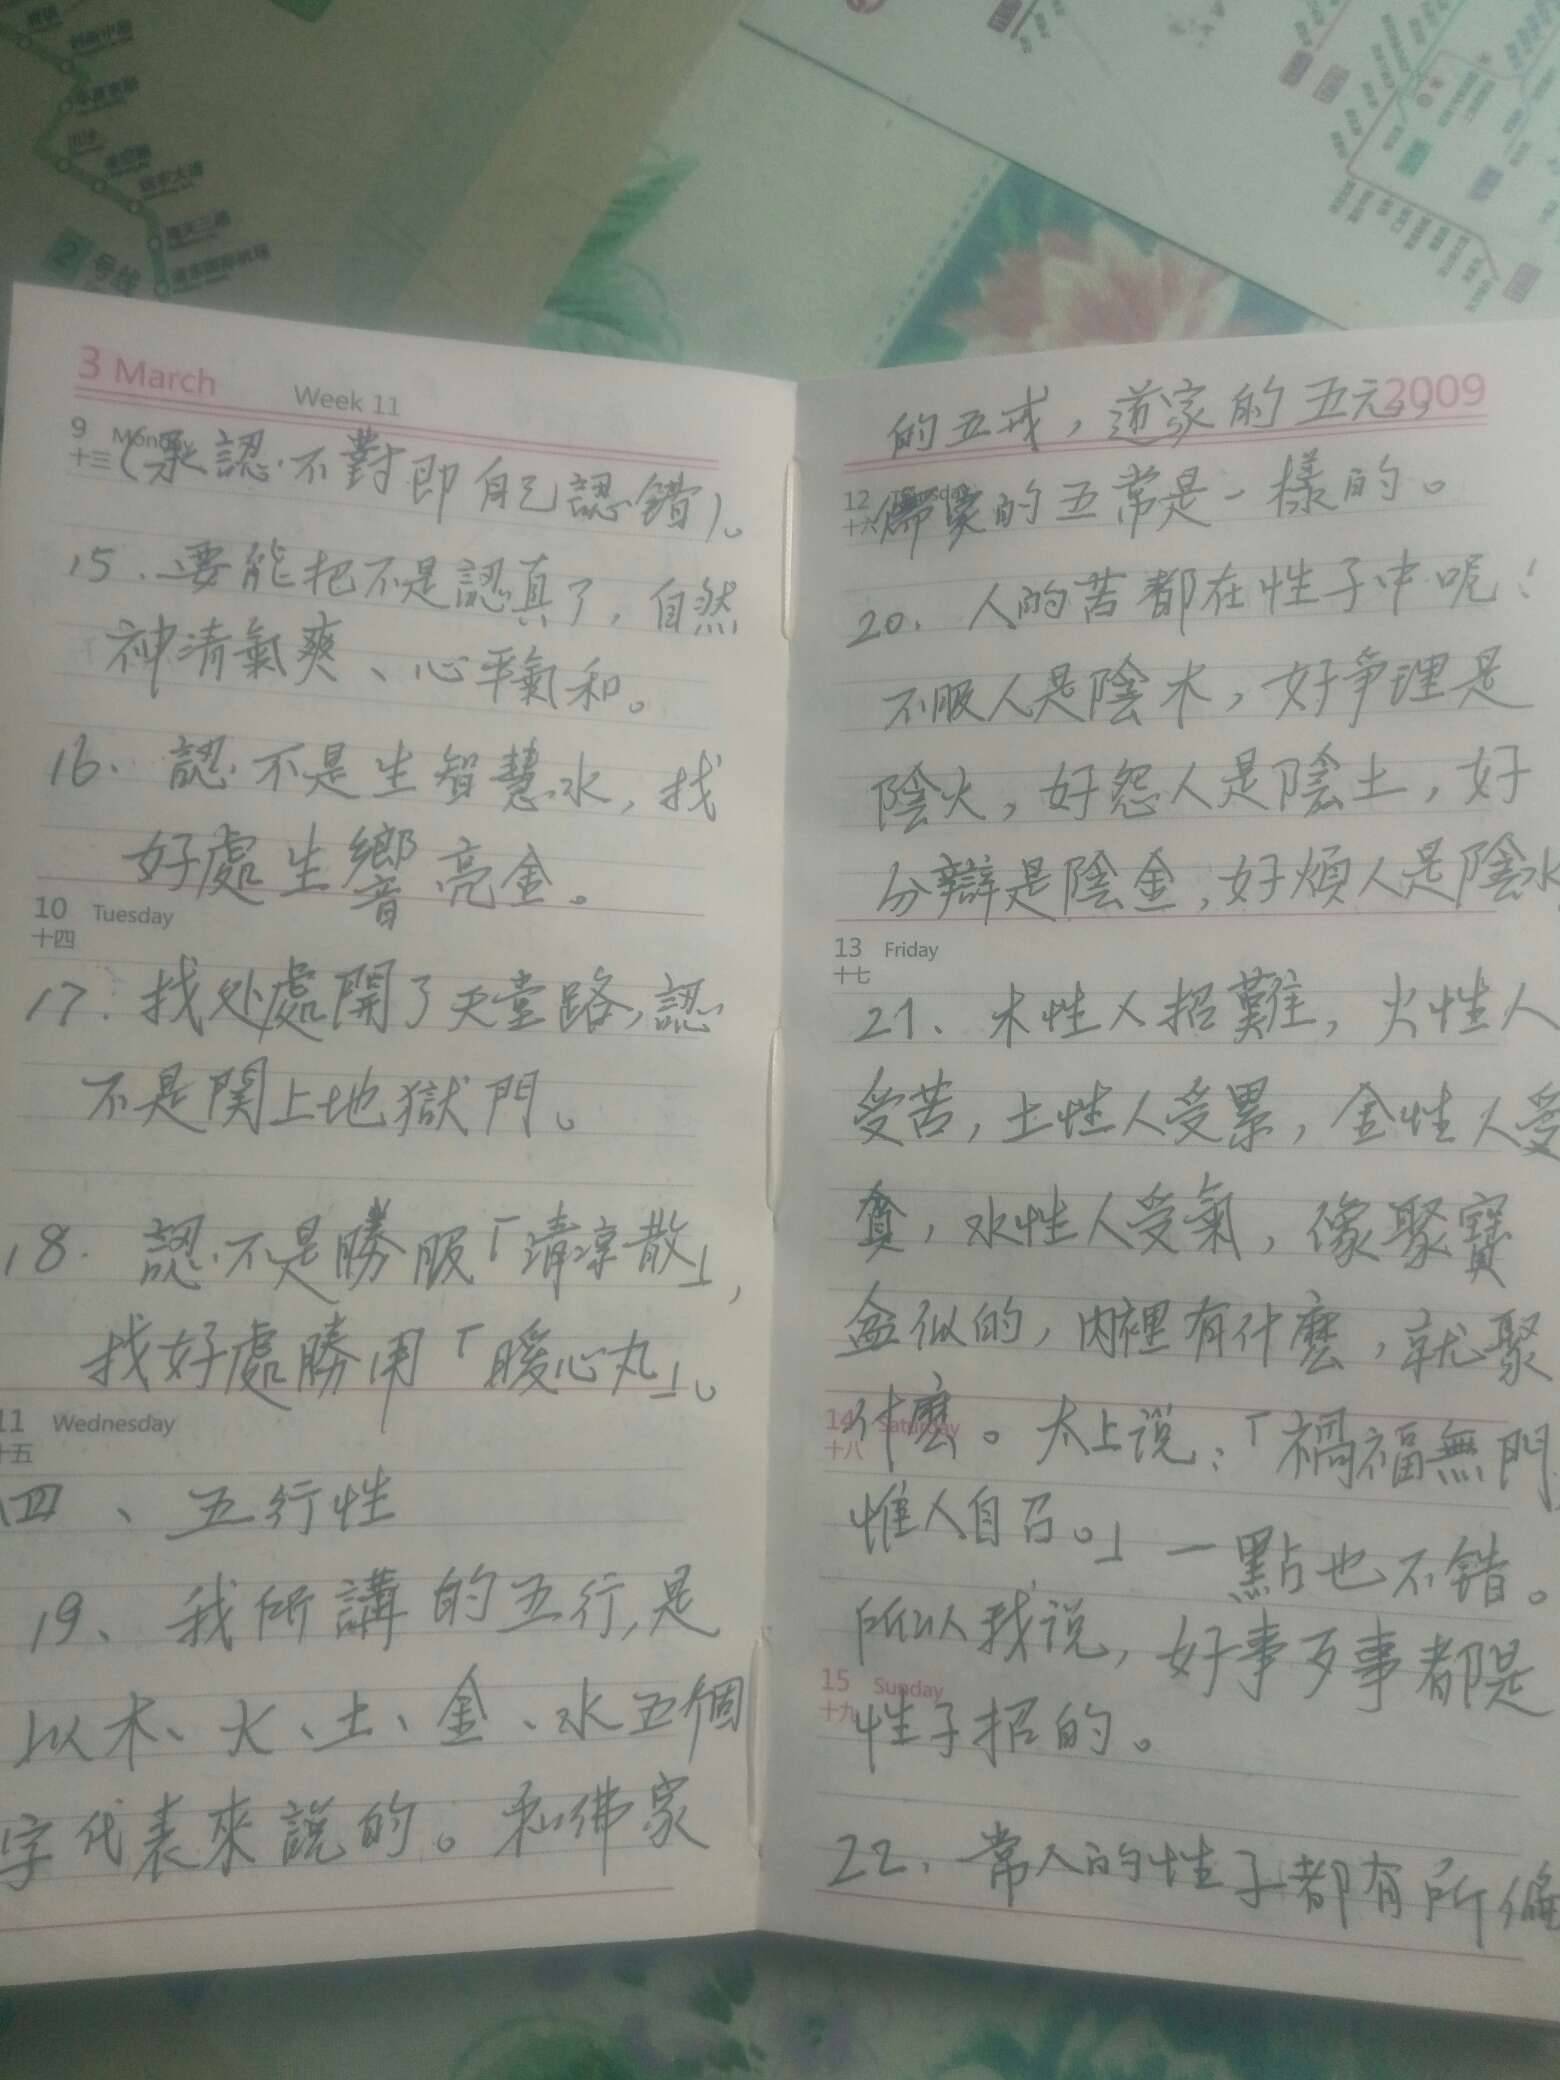 2号线
3 March
Week 11
9 Monday
十三
(承認不對即自己認錯)。
15、要能把不是認真了，自然
神清氣爽、心平氣和。
16、認不是生智慧水，找
好處生響亮金。
10 Tuesday
十四
17、找处處開了天堂路，認
不是関上地獄門。
18、認不是勝服「清凉散」，
找好處勝用「暖心丸」。
11 Wednesday
十五
四、五行性
19、我所講的五行，是
以木、火、土、金、水五個
字代表來說的。和佛家
2009
的五戒，道家的五元，
12
十六
儒家的五常是一樣的。
20、人的苦都在性子中呢！
不服人是陰木，好爭理是
陰火，好怨人是陰土，好
分辯是陰金，好煩人是陰水
13 Friday
十七
21、木性人招難，火性人
受苦，土性人受累，金性人受
貧，水性人受氣，像聚寶
盆似的，内裡有什麼，就聚
14 Saturday
十八
什麼。太上说：「禍福無門
惟人自召。」一點也不錯。
所以我说，好事歹事都是
15 Sunday
十九
性子招的。
22、常人的性子都有所偏